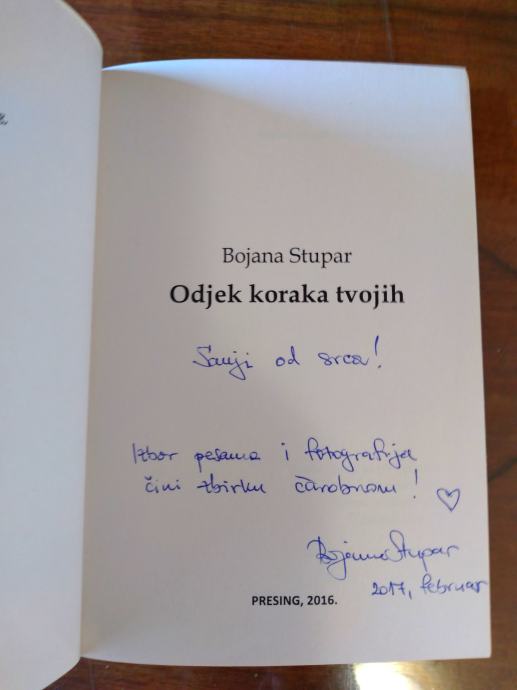 Bojana Stupar
Odjek koraka tvojih
Sanji od srca!
Izbor pesama i fotografija
čini zbirku čarobnom! ♡
Bojana Stupar
2017, februar
PRESING, 2016.